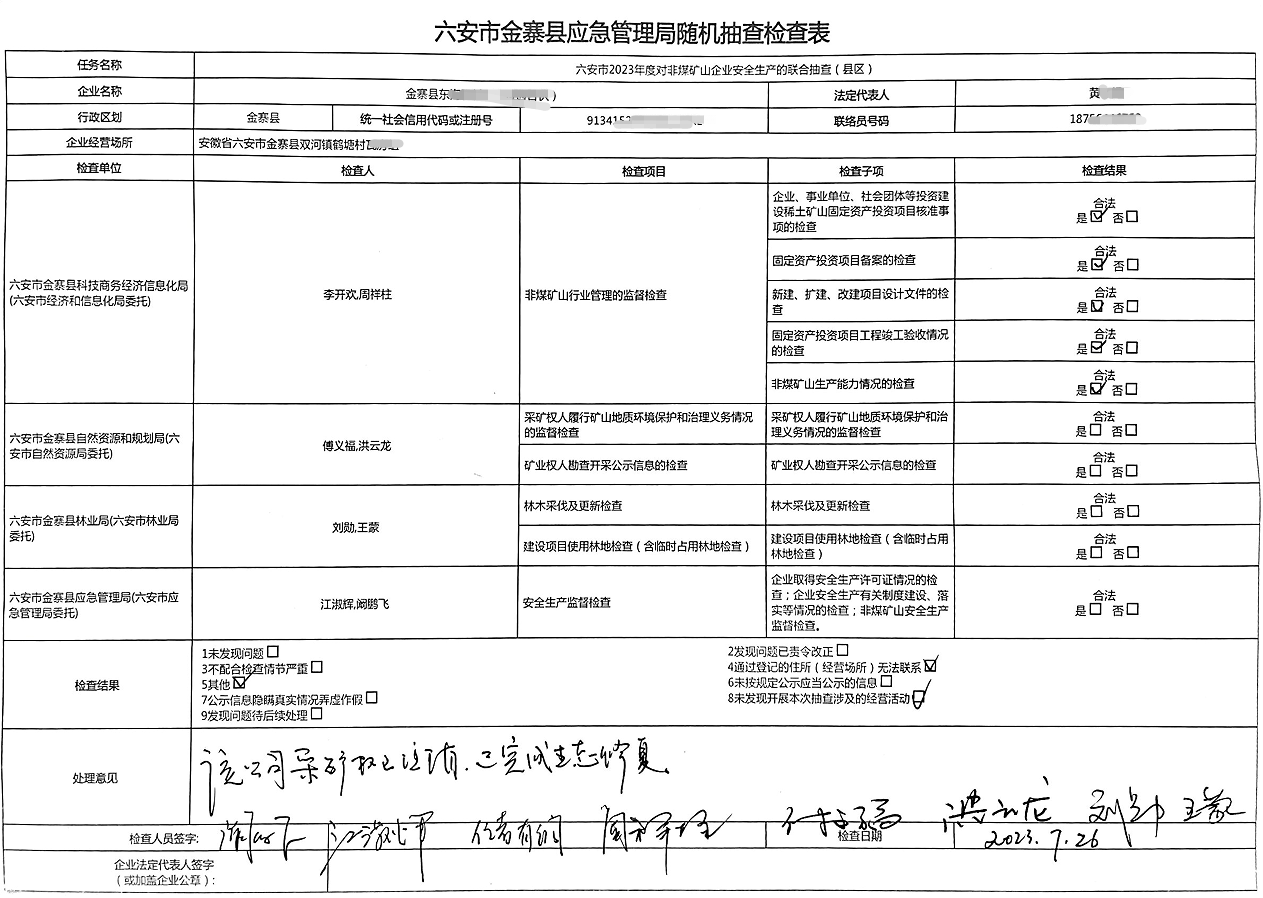 六安市金寨县应急管理局随机抽查检查表
任务名称 六安市2023年度对非煤矿山企业安全生产的联合抽查（县区）
企业名称 金寨县东 ） 法定代表人 黄
行政区划 金寨县 统一社会信用代码或注册号 913415 联络员号码 187
企业经营场所 安徽省六安市金寨县双河镇鹤塘村
检查单位 检查人 检查项目 检查子项 检查结果
六安市金寨县科技商务经济信息化局
(六安市经济和信息化局委托)
李开欢,周祥柱
非煤矿山行业管理的监督检查
企业、事业单位、社会团体等投资建
设稀土矿山固定资产投资项目核准事
项的检查
合法
是☑ 否□
固定资产投资项目备案的检查
合法
是☑ 否□
新建、扩建、改建项目设计文件的检
查
合法
是☑ 否□
固定资产投资项目工程竣工验收情况
的检查
合法
是☑ 否□
非煤矿山生产能力情况的检查
合法
是☑ 否□
六安市金寨县自然资源和规划局(六
安市自然资源局委托)
傅义福,洪云龙
采矿权人履行矿山地质环境保护和治理义务情况
的监督检查
采矿权人履行矿山地质环境保护和治
理义务情况的监督检查
合法
是□ 否□
矿业权人勘查开采公示信息的检查
矿业权人勘查开采公示信息的检查
合法
是□ 否□
六安市金寨县林业局(六安市林业局
委托)
刘勋,王蒙
林木采伐及更新检查
林木采伐及更新检查
合法
是□ 否□
建设项目使用林地检查（含临时占用林地检查）
建设项目使用林地检查（含临时占用
林地检查）
合法
是□ 否□
六安市金寨县应急管理局(六安市应
急管理局委托)
江淑辉,阚鹏飞
安全生产监督检查
企业取得安全生产许可证情况的检
查；企业安全生产有关制度建设、落
实等情况的检查；非煤矿山安全生产
监督检查。
合法
是□ 否□
检查结果
1未发现问题□ 2发现问题已责令改正□
3不配合检查情节严重□ 4通过登记的住所（经营场所）无法联系☑
5其他☑ 6未按规定公示应当公示的信息□
7公示信息隐瞒真实情况弄虚作假□ 8未发现开展本次抽查涉及的经营活动☑
9发现问题待后续处理□
处理意见
该公司采矿权已注销,已完成生态修复。
检查人员签字: 江淑辉 周祥柱 洪云龙 王蒙
检查日期 2023.7.26
企业法定代表人签字
（或加盖企业公章）: